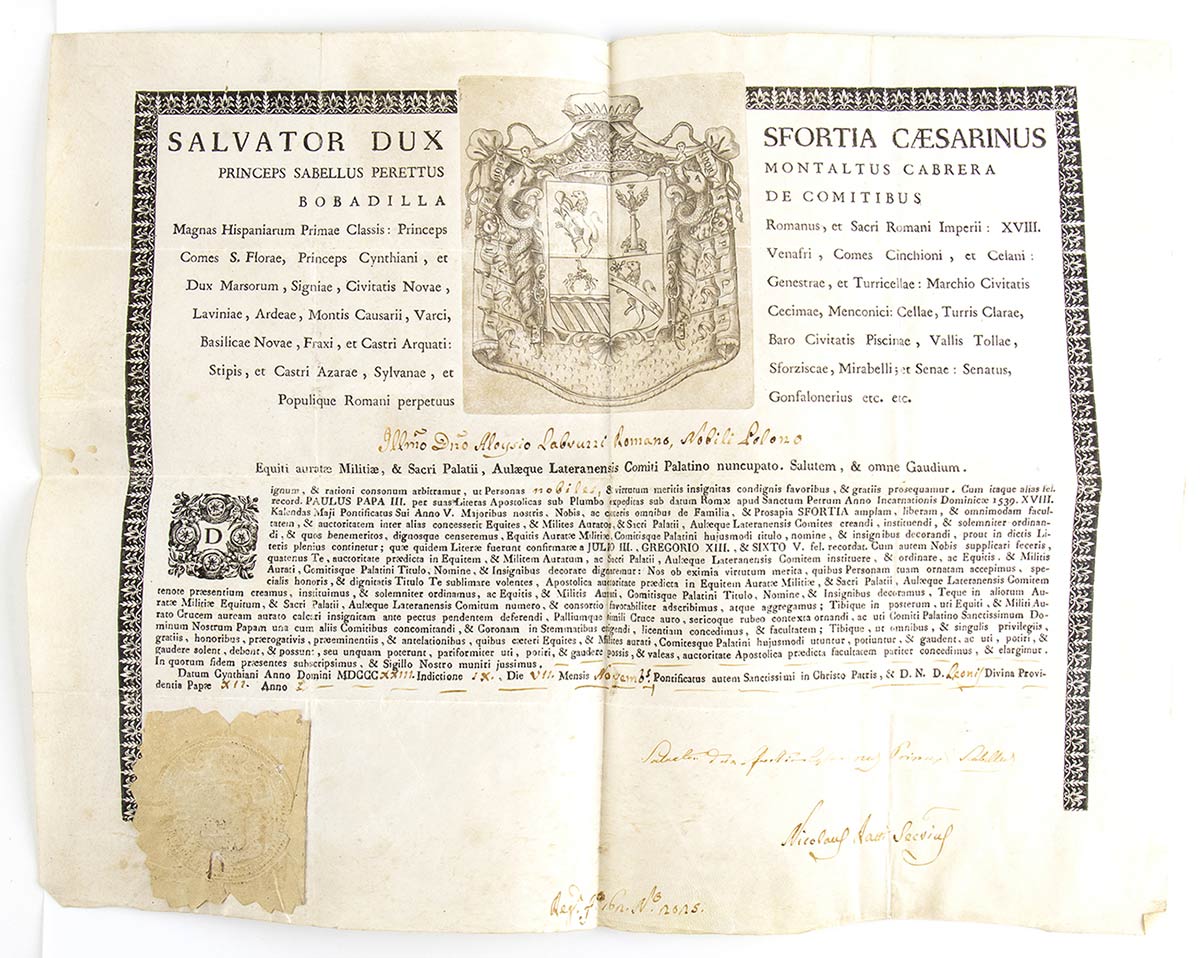 SALVATOR DUX SFORTIA CÆSARINUS
PRINCEPS SABELLUS PERETTUS MONTALTUS CABRERA
BOBADILLA DE COMITIBUS
Magnas Hispaniarum Primae Classis: Princeps Romanus, et Sacri Romani Imperii: XVIII.
Comes S. Florae, Princeps Cynthiani, et Venafri, Comes Cinchioni, et Celani:
Dux Marsorum, Signiae, Civitatis Novae, Genestrae, et Turricellae: Marchio Civitatis
Laviniae, Ardeae, Montis Causarii, Varci, Cecimae, Menconici: Cellae, Turris Clarae,
Basilicae Novae, Fraxi, et Castri Arquati: Baro Civitatis Piscinae, Vallis Tollae,
Stipis, et Castri Azarae, Sylvanae, et Sforziscae, Mirabelli; et Senae: Senatus,
Populique Romani perpetuus Gonfalonerius etc. etc.
Illmo Dno Aloysio Labsurri Romano, Nobili Polono
Equiti auratæ Militiæ, & Sacri Palatii, Aulæque Lateranensis Comiti Palatino nuncupato. Salutem, & omne Gaudium.
Dignum, & rationi consonum arbitramur, ut Personas nobiles, & virtutum meritis insignitas condignis favoribus, & gratiis prosequamur. Cum itaque alias fel.
record. PAULUS PAPA III. per suas Literas Apostolicas sub Plumbo expeditas sub datum Romæ apud Sanctum Petrum Anno Incarnationis Dominicæ 1539. XVIII.
Kalendas Maji Pontificatus Sui Anno V. Majoribus nostris, Nobis, ac cæteris omnibus de Familia, & Prosapia SFORTIA amplam, liberam, & omnimodam facul-
tatem, & auctoritatem inter alias concesserit Equites, & Milites Auratos, & Sacri Palatii, Aulæque Lateranensis Comites creandi, instituendi, & solemniter ordinan-
di, & quos benemeritos, dignosque censeremus, Equitis Auratæ Militiæ, Comitisque Palatini hujusmodi titulo, nomine, & insignibus decorandi, prout in dictis Li-
teris plenius continetur; quæ quidem Literæ fuerunt confirmatæ a JULIO III., GREGORIO XIII., & SIXTO V. fel. recordat. Cum autem Nobis supplicari feceris,
quatenus Te, auctoritate prædicta in Equitem, & Militem Auratum, ac Sacri Palatii, Aulæque Lateranensis Comitem instituere, & ordinare, ac Equitis, & Militis
Aurati, Comitisque Palatini Titulo, Nomine, & Insignibus decorate dignaremur: Nos ob eximia virtutum merita, quibus Personam tuam ornatam accepimus, spe-
cialis honoris, & dignitatis Titulo Te sublimare volentes, Apostolica auctoritate prædicta in Equitem Auratæ Militiæ, & Sacri Palatii, Aulæque Lateranensis Comitem
tenore præsentium creamus, instituimus, & solemniter ordinamus, ac Equitis, & Militis Aurati, Comitisque Palatini Titulo, Nomine, & Insignibus decoramus, Teque in aliorum Au-
ratæ Militiæ Equitum, & Sacri Palatii, Aulæque Lateranensis Comitum numero, & consortio favorabiliter adscribimus, atque aggregamus; Tibique in posterum, uti Equiti, & Militi Au-
rato Crucem auream aurato calcari insignitam ante pectus pendentem deferendi, Palliumque simili Cruce auro, sericoque rubeo contexta ornandi, ac uti Comiti Palatino Sanctissimum Do-
minum Nostrum Papam una cum aliis Comitibus concomitandi, & Coronam in Stemmatibus erigendi, licentiam concedimus, & facultatem; Tibique, ut omnibus, & singulis privilegiis,
gratiis, honoribus, prærogativis, præeminentiis, & antelationibus, quibus cæteri Equites, & Milites aurati, Comitesque Palatini hujusmodi utuntur, potiuntur, & gaudent, ac uti, potiri, &
gaudere solent, debent, & possunt, seu unquam poterunt, pariformiter uti, potiri, & gaudere possis, & valeas, auctoritate Apostolica prædicta facultatem pariter concedimus, & elargimur.
In quorum fidem præsentes subscripsimus, & Sigillo Nostro muniri jussimus.
Datum Cynthiani Anno Domini MDCCCXXIII. Indictione IX. Die VII. Mensis Novemb. Pontificatus autem Sanctissimi in Christo Patris, & D. N. D. Leonis Divina Provi-
dentia Papæ XII. Anno I
Salvator Dux Princeps Sabellus
Nicolaus
Reg. 162. No. 2025.